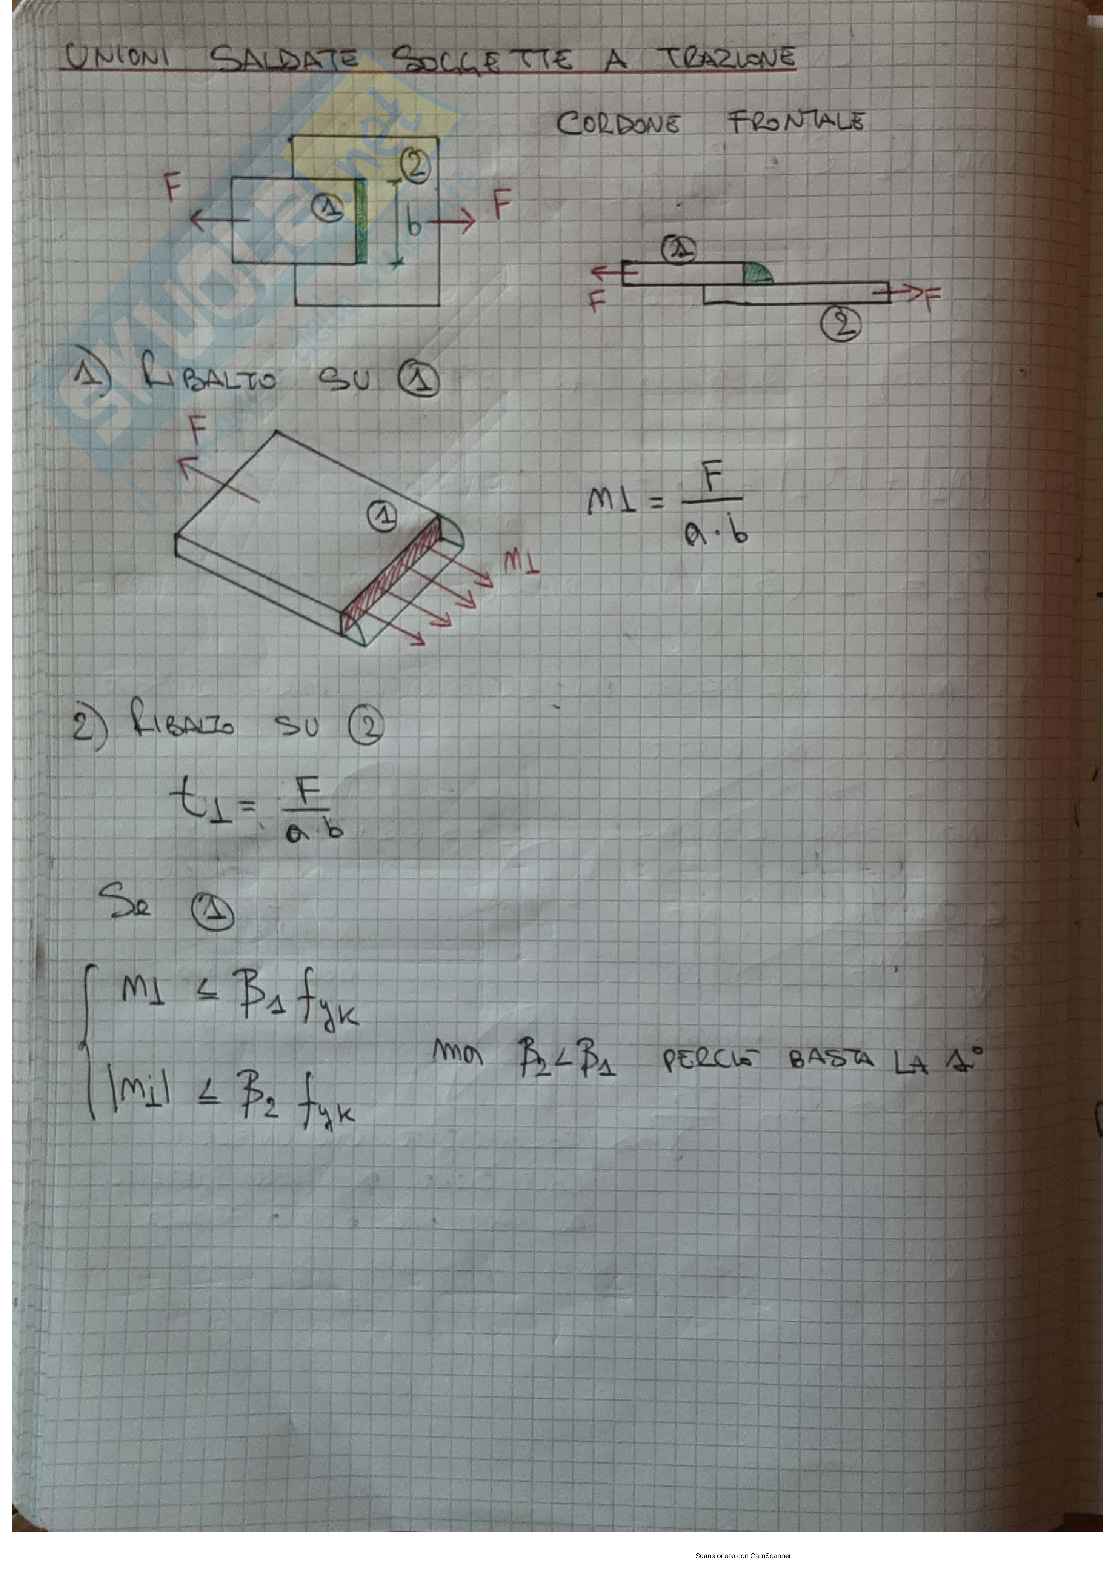 UNIONI SALDATE SOGGETTE A TRAZIONE
CORDONE FRONTALE
F ① ② b F
① F ② F
1) RIBALTO SU ①
F ① n⊥
n⊥ = F / a · b
2) RIBALTO SU ②
t⊥ = F / a b
Se ①
n⊥ ≤ β1 fyk
|n⊥| ≤ β2 fyk
ma β2 < β1 PERCIÒ BASTA LA 1°
SKUOLA.net
Scansionato con CamScanner